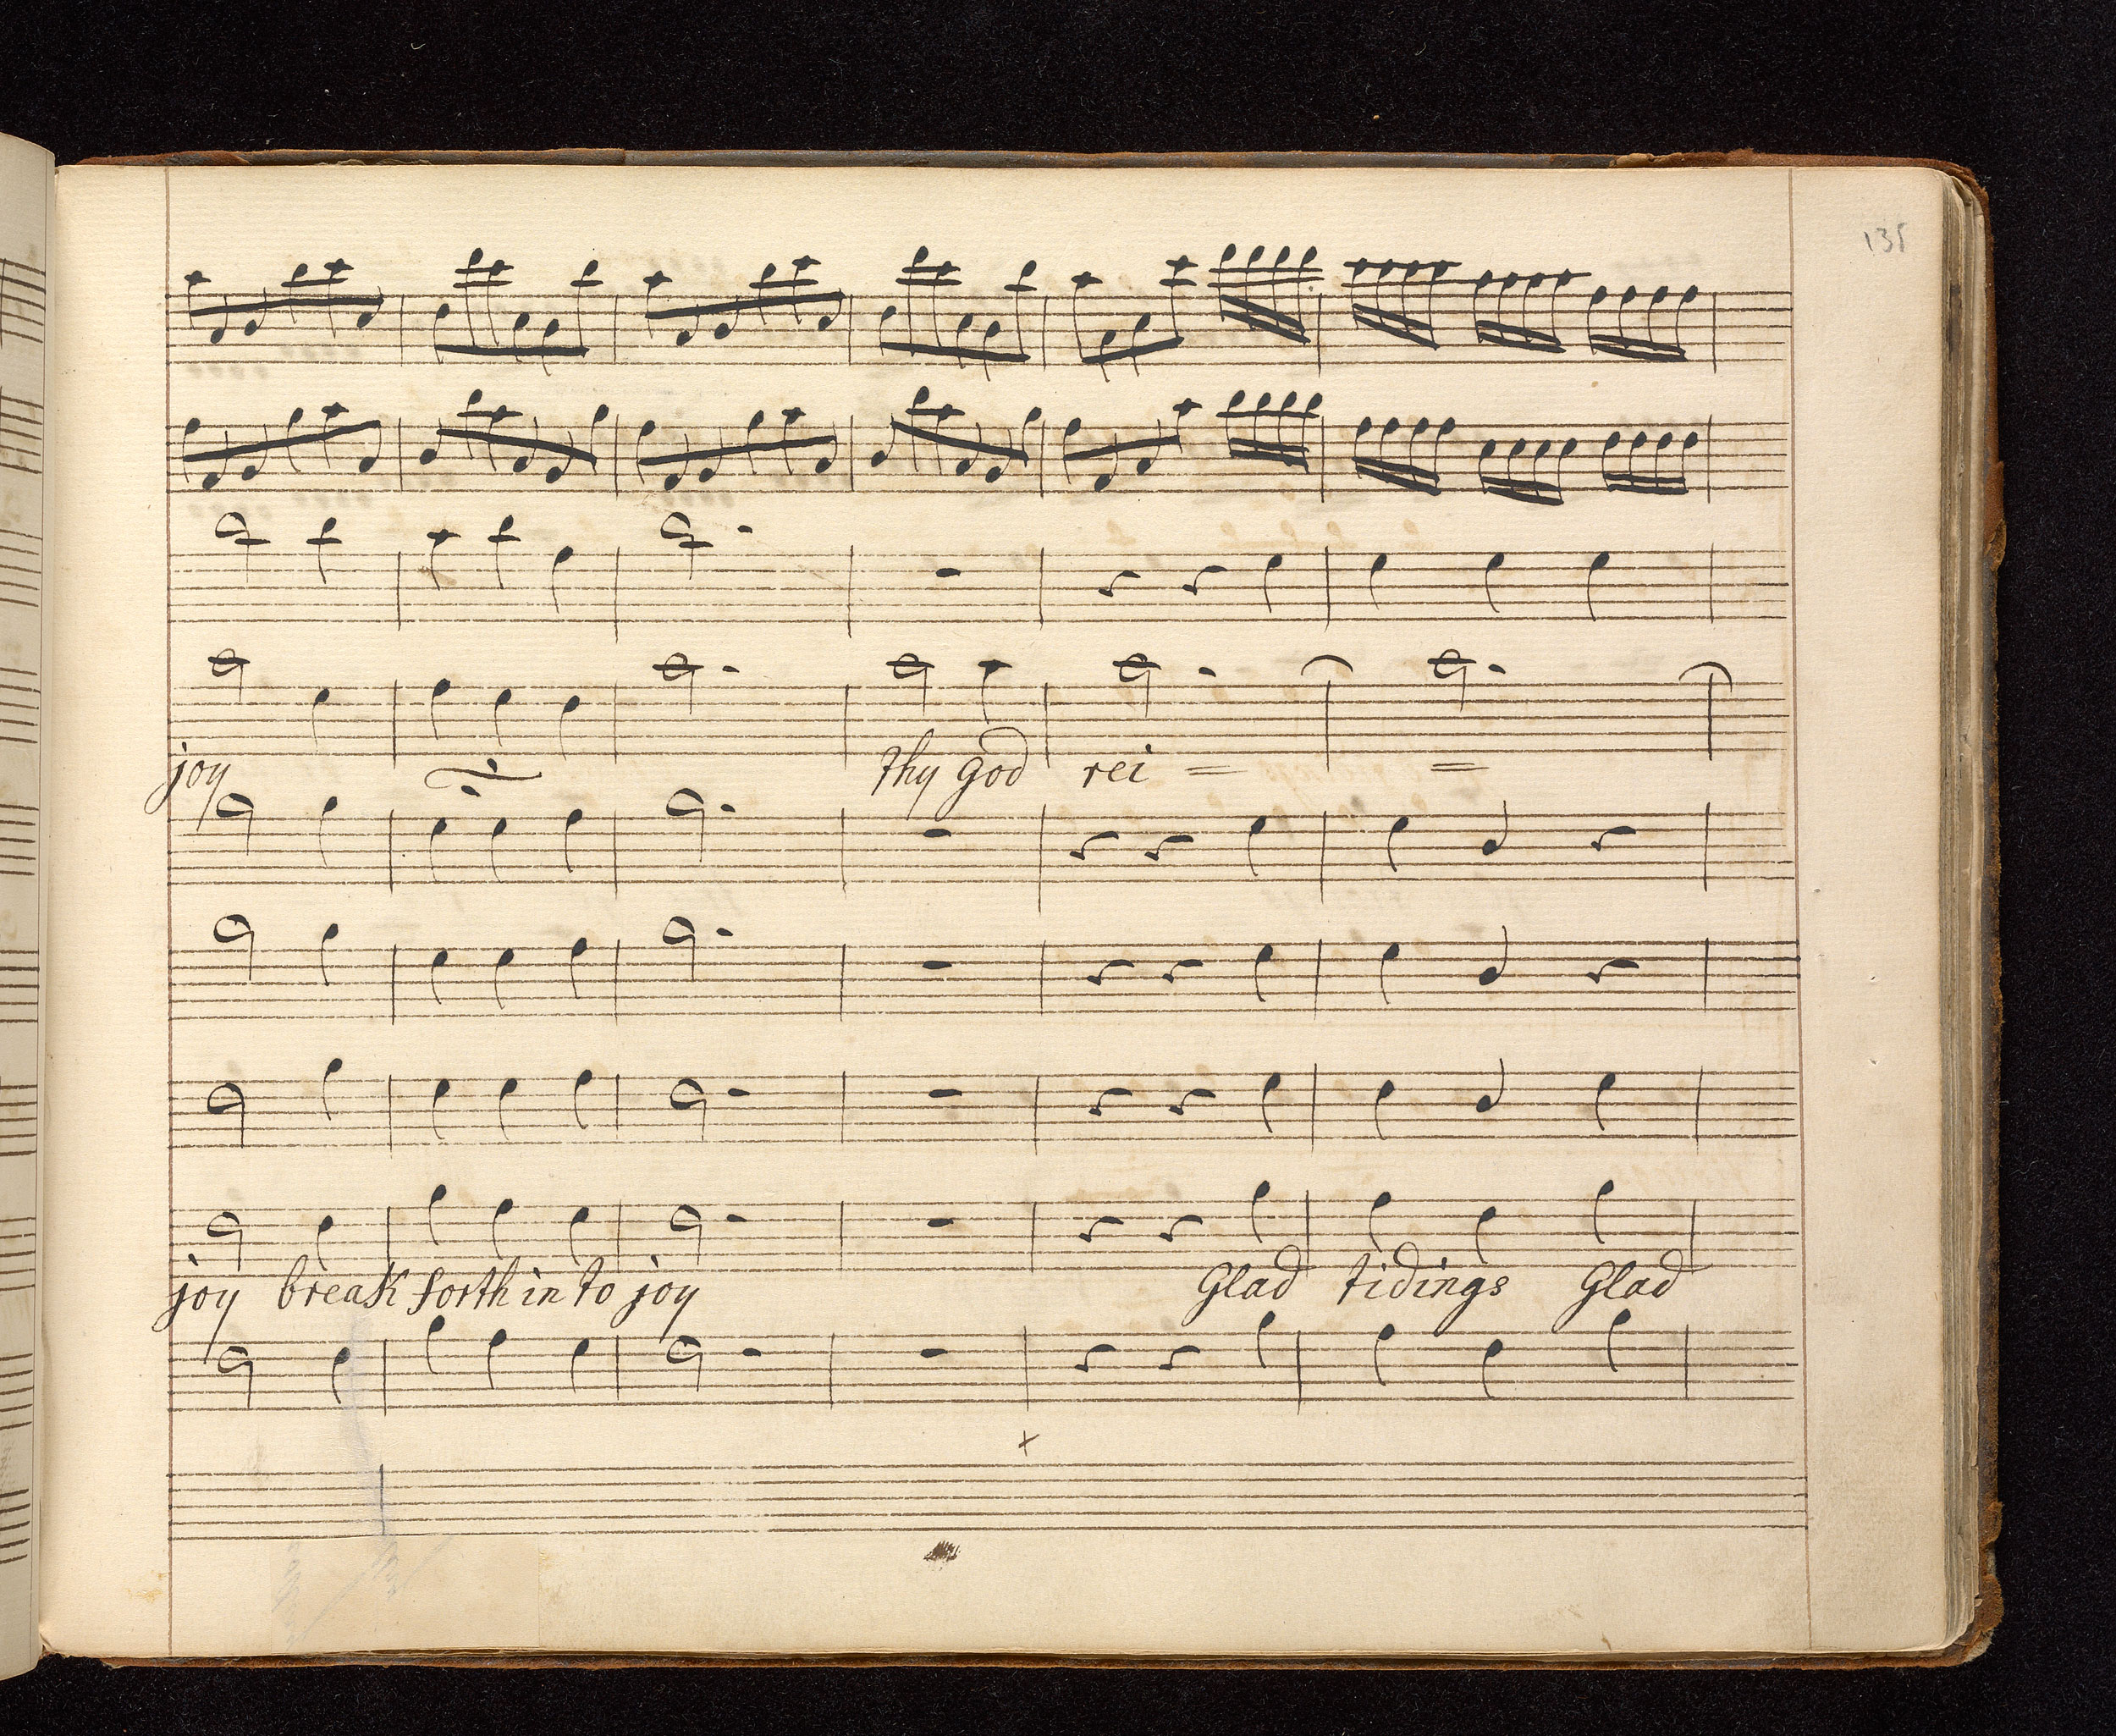 135
joy thy god rei = =
joy break forth in to joy Glad tidings Glad